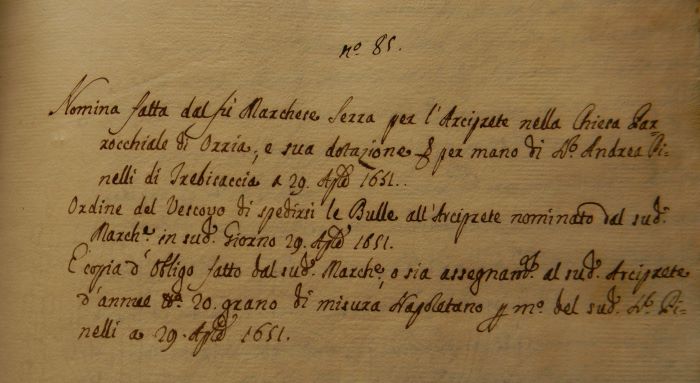 n.º 85.
Nomina fatta dal fù Marchese Serra per l'Arciprete nella Chiesa Par-
rocchiale di Orria, e sua dotazione per mano di N.r Andrea Pi-
nelli di Trebisaccia a 29. Aple 1651.
Ordine del Vescovo di spedirsi le Bulle all'Arciprete nominato dal sud.º
March.e in sud.º Giorno 29. Aple 1651.
E copia d'Obligo fatto dal sud.º March.e, o sia assegnam.to al sud.º Arciprete
d'annue 20. grano di misura Napoletano p m.º del sud.º N.r Pi-
nelli a 29. Aple 1651.